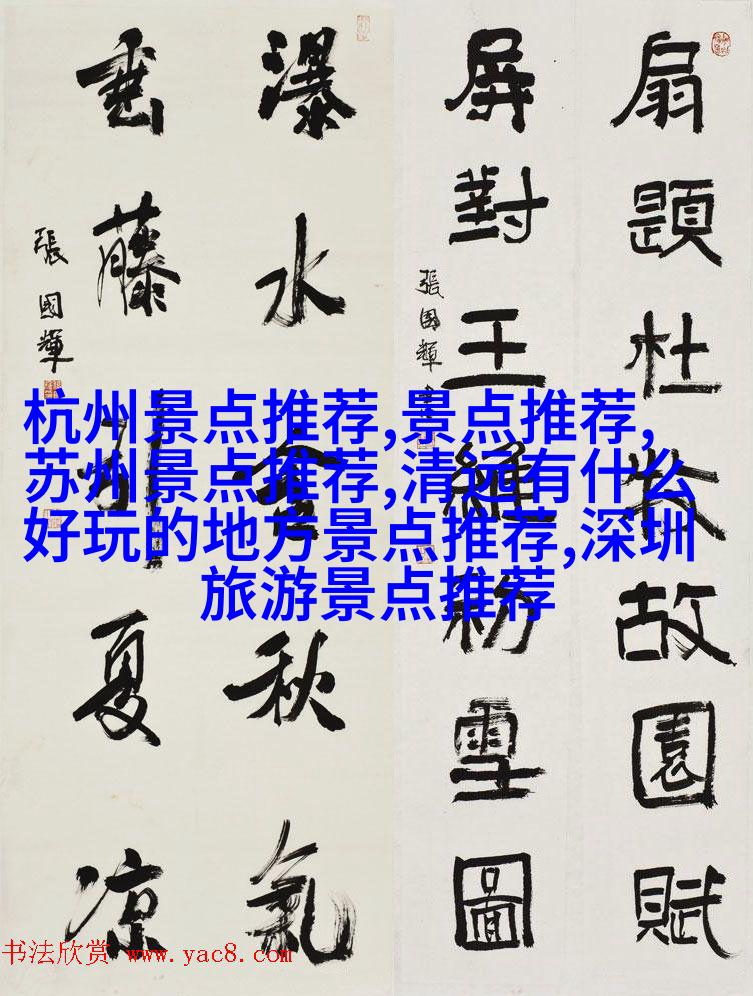 扇題杜牧故園賦
屏對王維初雪圖
張國輝
瀑水含秋氣
垂藤引夏凉
張國輝
杭州景点推荐,景点推荐,
苏州景点推荐,清远有什么
好玩的地方景点推荐,深圳
旅游景点推荐
书法欣赏 www.yac8.com